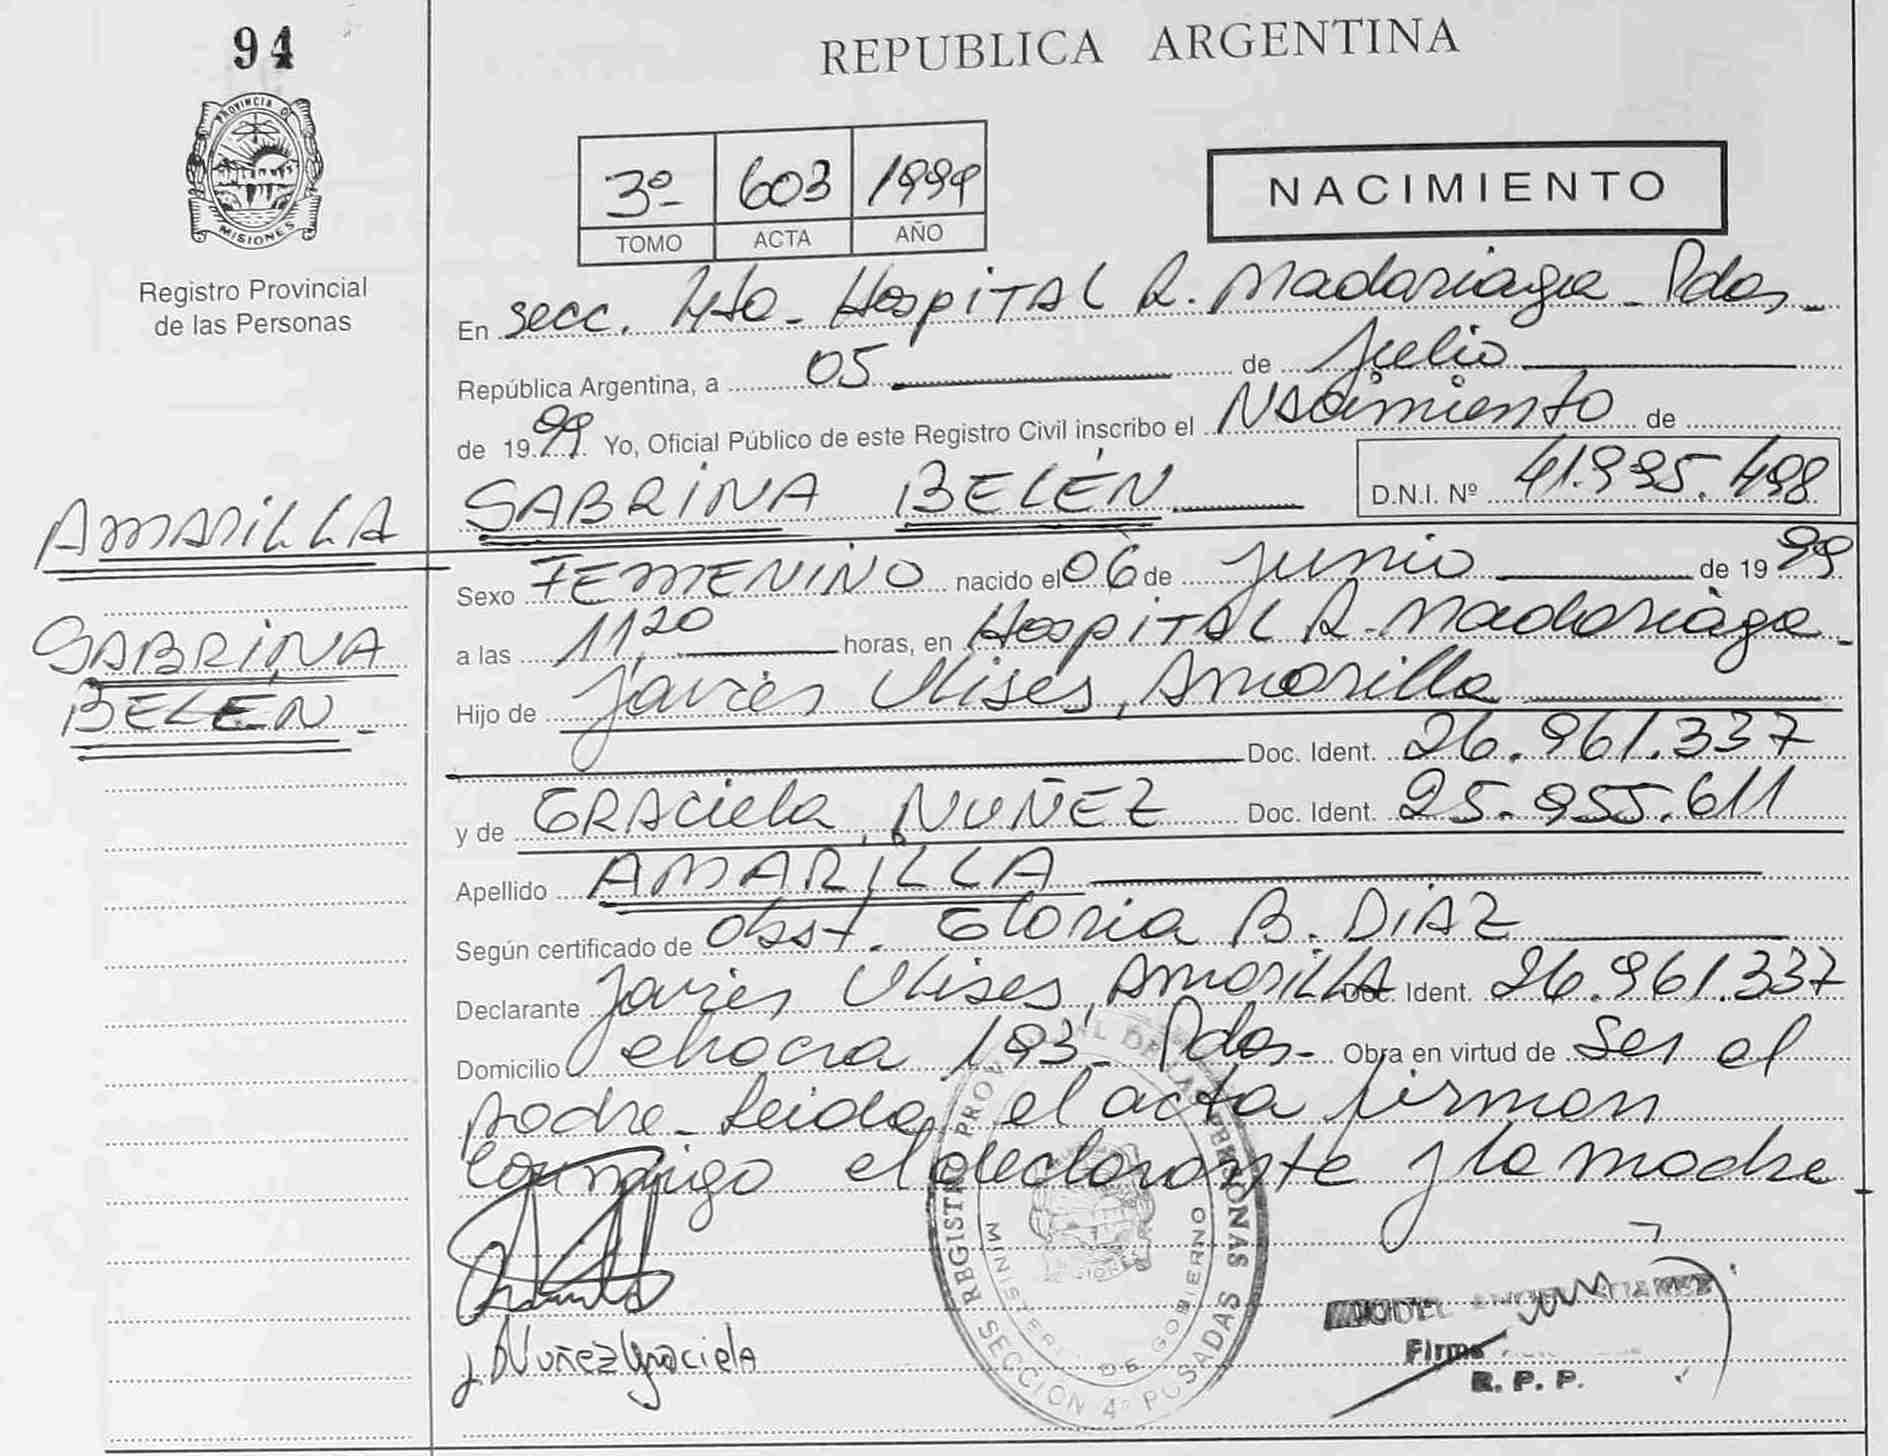 94
PROVINCIA D
MISIONES
Registro Provincial
de las Personas
REPUBLICA ARGENTINA
3º 603 1999
TOMO ACTA AÑO
NACIMIENTO
En secc. 4ta - Hospital R. Madariaga - Pdas -
República Argentina, a 05 de julio
de 1999 Yo, Oficial Público de este Registro Civil inscribo el Nacimiento de
SABRINA BELÉN D.N.I. Nº 41.995.498
AMARILLA
SABRINA
BELÉN -
Sexo FEMENINO nacido el 06 de junio de 1999
a las 11,20 horas, en Hospital R. Madariaga -
Hijo de Javier Ulises, Amarilla
Doc. Ident. 26.961.337
y de GRACiela, NUÑEZ Doc. Ident. 25.955.611
Apellido AMARILLA
Según certificado de Obst. Gloria B. DiAZ
Declarante Javier Ulises, Amarilla Doc. Ident. 26.961.337
Domicilio chacra 193 - Pdas - Obra en virtud de ser el
padre - Leida el acta firman
conmigo el declarante y la madre -
REGISTRO PROVINCIAL DE LAS PERSONAS
MINISTERIO DE GOBIERNO
SECCION 4ª POSADAS
Nuñez Graciela
Firma
R. P. P.